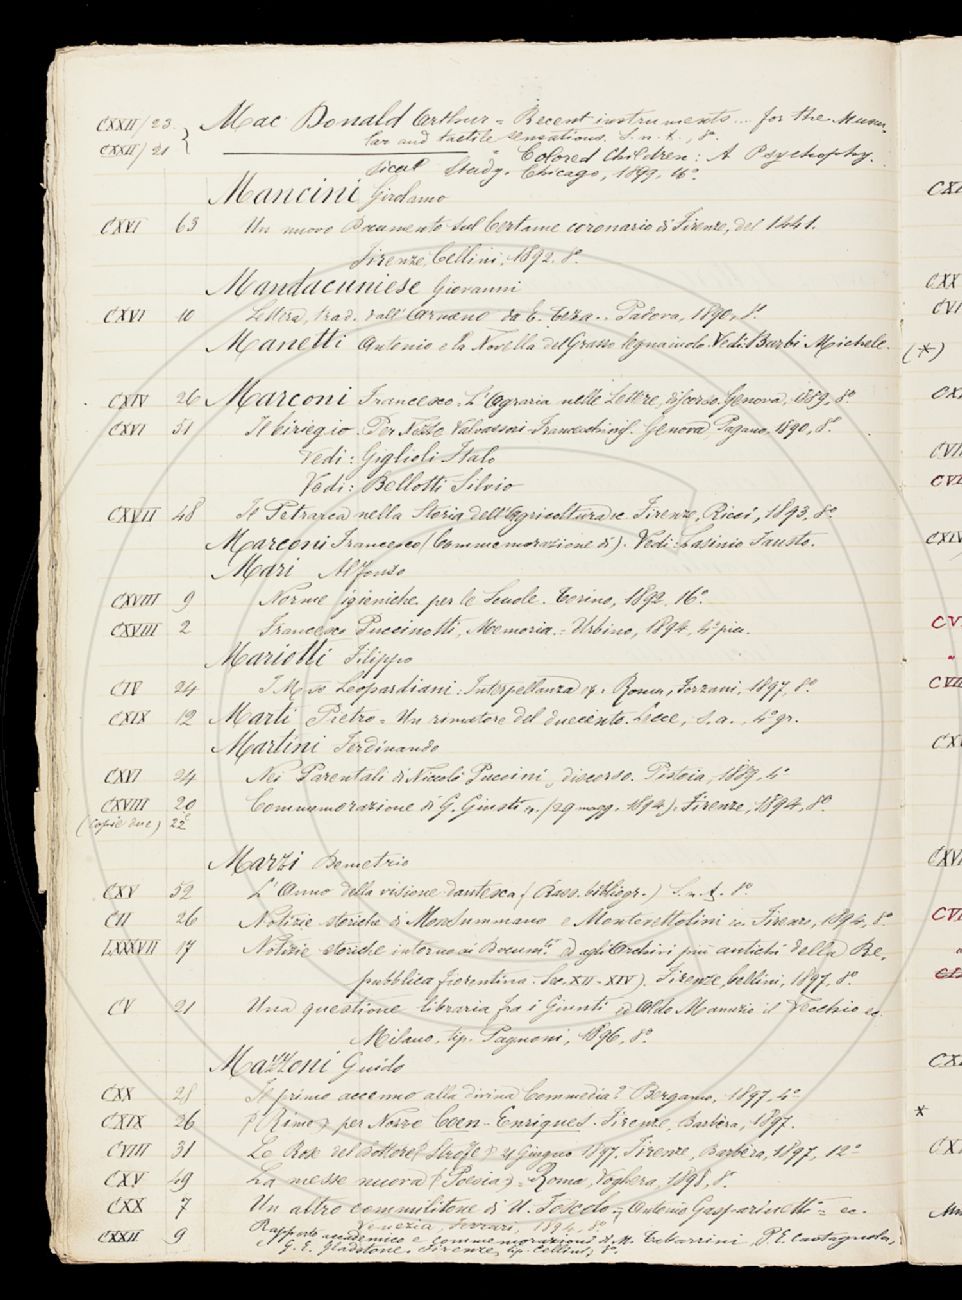 CXXII/23 Mac Donald Arthur = Recent instruments ... for the Muscu-
lar and tactile sensations. S. n. t., 8°
CXXII/21 " Colored Children: A Psychophy-
sical Study. Chicago, 1899, 16°
Mancini Girolamo
CXVI 63 Un nuovo Documento sul Certame coronario di Firenze, del 1441.
Firenze, Cellini, 1892. 8°
Mandacuniese Giovanni
CXVI 10 Lettera, trad. dall'Armeno da E. Teza. Padova, 1890, 8°
Manetti Antonio e la Novella del Grasso legnaiuolo. Vedi: Barbi Michele.
CXIV 26 Marconi Francesco. L'Agraria nelle Lettere, discorso. Genova, 1889, 8°
CXVI 51 Il ciriegio. Per Nozze Valvassori-Franceschini. Genova, Pagano, 1890, 8°
Vedi: Giglioli Italo
Vedi: Bellotti Silvio
CXVII 48 Il Petrarca nella Storia dell'Agricoltura. Firenze, Ricci, 1893, 8°
Marconi Francesco (Commemorazione di). Vedi: Lasinio Fausto.
Mari Alfonso
CXVIII 9 Norme igieniche per le Scuole. Torino, 1892. 16°
CXVIII 2 Francesco Puccinotti, Memoria. = Urbino, 1894, 4° picc.
Mariotti Filippo
CIV 24 I Mss. Leopardiani: Interpellanza ec. Roma, Forzani, 1897, 8°
CXIX 12 Marti Pietro = Un rimatore del duecento. Lecce, s. a., 4° gr.
Martini Ferdinando
CXVI 24 Nei Parentali di Niccolò Puccini, discorso. Pistoia, 1889, 4°
CXVIII 20 Commemorazione di G. Giusti (29 magg. 1894). Firenze, 1894, 8°
(Copie due) 22
Marzi Demetrio
CXV 52 L'Anno della visione dantesca. (Rass. bibliogr.) S. n. t. 8°
CII 26 Notizie storiche di Monsummano e Montevettolini. Firenze, 1894, 8°
LXXXVII 17 Notizie storiche intorno ai Docum.ti ed agli Archivi più antichi della Re-
pubblica fiorentina. Sec. XII-XIV). Firenze, Cellini, 1897, 8°
CV 21 Una questione libraria fra i Giunti ed Aldo Manuzio il Vecchio ec.
Milano, tip. Pagnoni, 1896, 8°
Mazzoni Guido
CXX 28 Il primo accenno alla divina Commedia? Bergamo, 1897, 4°
CXIX 26 (Rime) per Nozze Coen-Enriques. Firenze, Barbèra, 1897.
CVIII 31 Le Rose del Dottore (Strofe) 4 Giugno 1897. Firenze, Barbèra, 1897, 12°
CXV 49 La messe nuova (Poesia) = Roma, Voghera, 1898, 8°
CXX 7 Un altro commilitone di U. Foscolo, Antonio Gasparinetti = ec.
Venezia, Ferrari, 1894, 8°
CXXII 9 Rapporto accademico e commemorazioni di M. Tabarrini, P. E. Castagnola,
G. E. Gladstone. Firenze, tip. Cellini, 8°